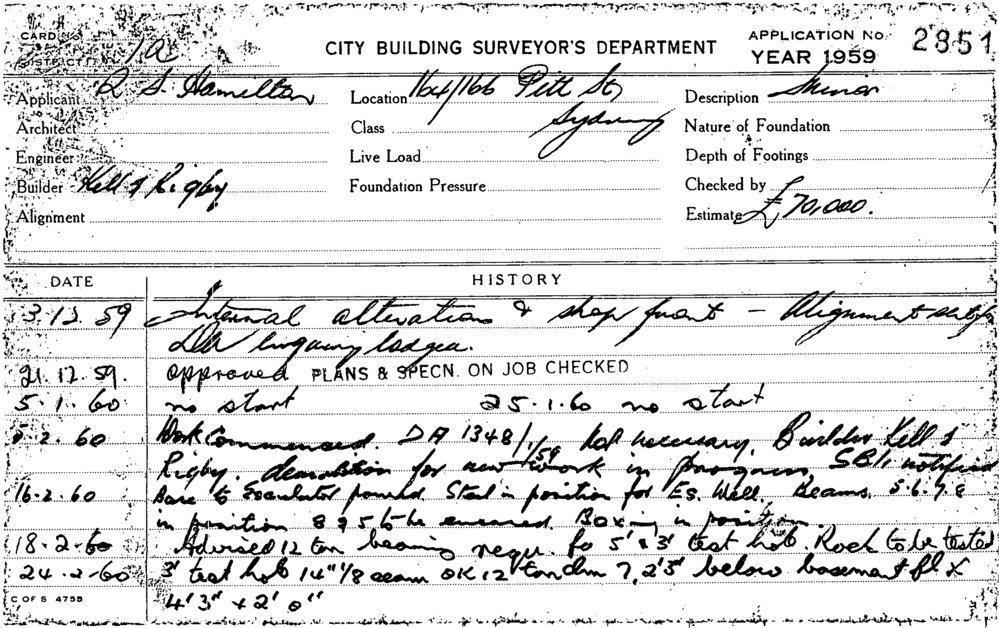 CARD No.
DISTRICT 1a
CITY BUILDING SURVEYOR'S DEPARTMENT
APPLICATION No. 2851
YEAR 1959
Applicant R S. Hamilton
Location 164/166 Pitt St,
Sydney
Description Minor
Architect
Class
Nature of Foundation
Engineer
Live Load
Depth of Footings
Builder Kell & Rigby
Foundation Pressure
Checked by
Alignment
Estimate £70,000.
DATE HISTORY
3.12.59 Internal alterations & shop front – Alignment
DA enquiry lodged.
21.12.59. approved PLANS & SPECN. ON JOB CHECKED
5.1.60 no start 25.1.60 no start
2.60 Work Commenced DA 1348/1/59 not necessary. Builder Kell &
Rigby. demolition for new work in progress, notified
16.2.60 Base to Escalator poured. Steel in position for Es. Well. Beams. 5.6.7.8
in position 8 & 5 to be encased. Boxing in position.
18.2.60 Advised 12 ton bearing 5' & 3' test hole. Rock to be tested
24.2.60 3' test hole 14" 1/8 seam OK 12 ton 7, 2'3" below basement fl &
4'3" + 2'0"
C OF S 4755